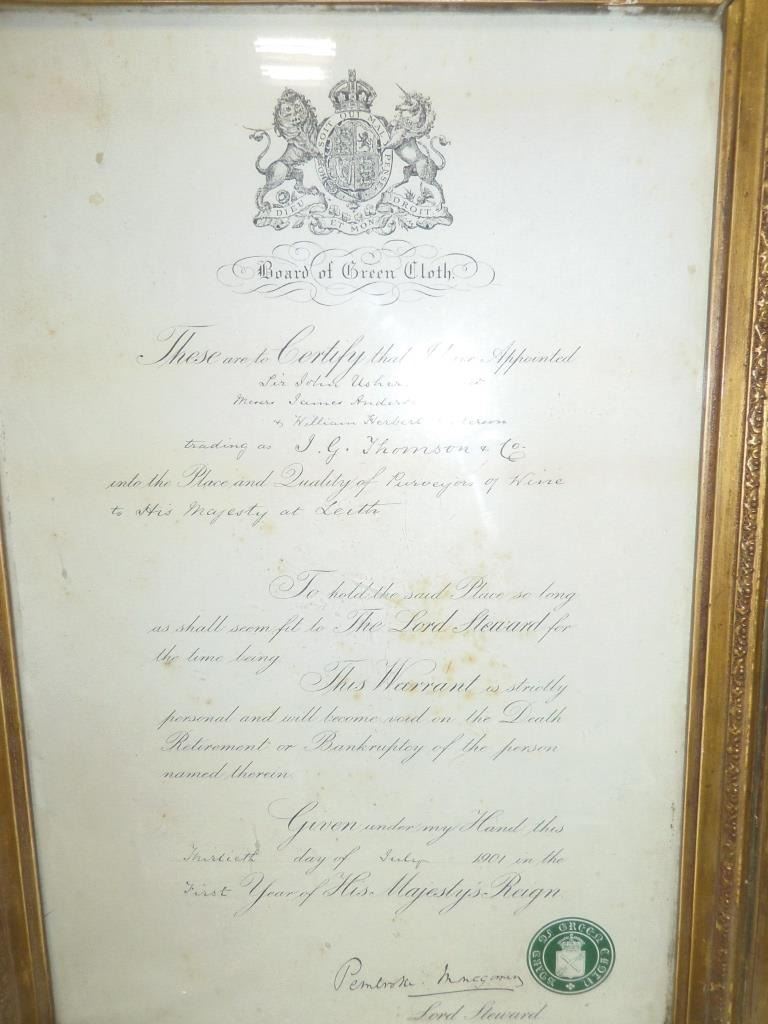 SOIT QUI MAL Y PENSE
DIEU ET MON DROIT
Board of Green Cloth.
These are to Certify that I have Appointed
Sir John Usher
Messrs James Anderson
& William Herbert
trading as J. G. Thomson & Co.
into the Place and Quality of Purveyors of Wine
to His Majesty at Leith
To hold the said Place so long
as shall seem fit to The Lord Steward for
the time being
This Warrant is strictly
personal and will become void on the Death
Retirement or Bankruptcy of the person
named therein.
Given under my Hand this
Thirtieth day of July 1901 in the
First Year of His Majesty's Reign.
BOARD OF GREEN CLOTH
Pembroke
Lord Steward.